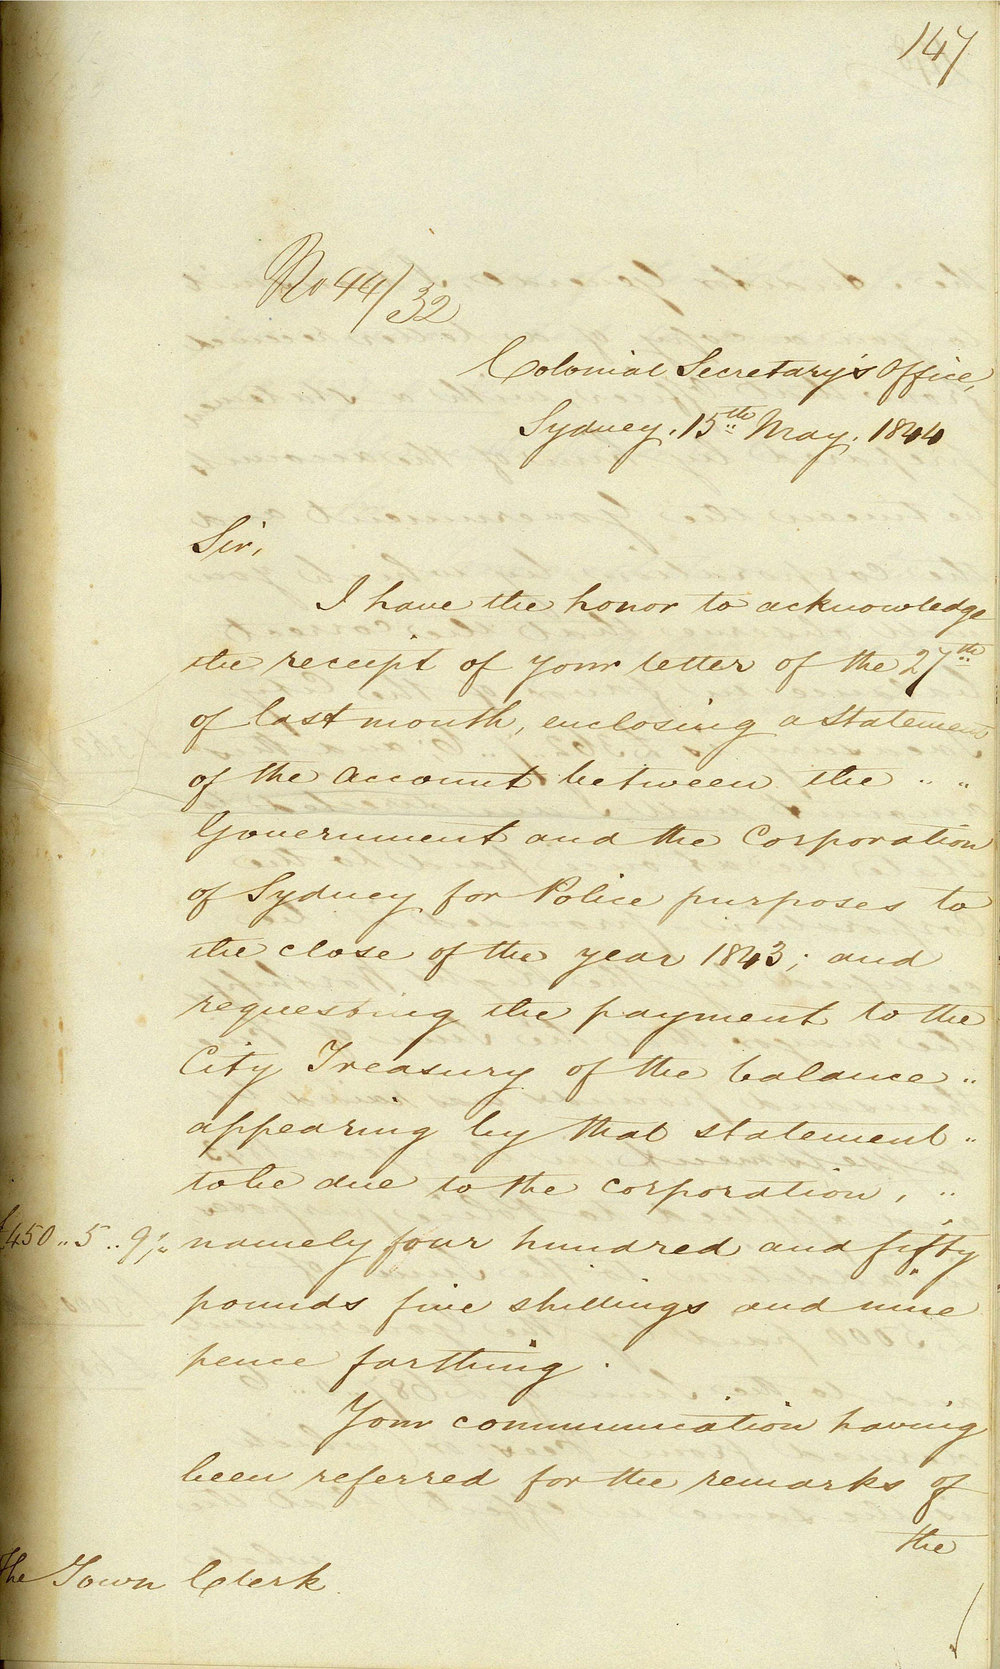 147
No 44/32
Colonial Secretary's Office,
Sydney. 15th May. 1844
Sir,
I have the honor to acknowledge
the receipt of your letter of the 27th
of last month, enclosing a Statement
of the Account between the " "
Government and the Corporation
of Sydney for Police purposes to
the close of the year 1843; and
requesting the payment to the
City Treasury of the balance "
appearing by that statement "
to be due to the corporation, "
£450 .. 5 .. 9¼ namely four hundred and fifty
pounds five shillings and nine
pence farthing.
Your communication having
been referred for the remarks of
the
The Town Clerk